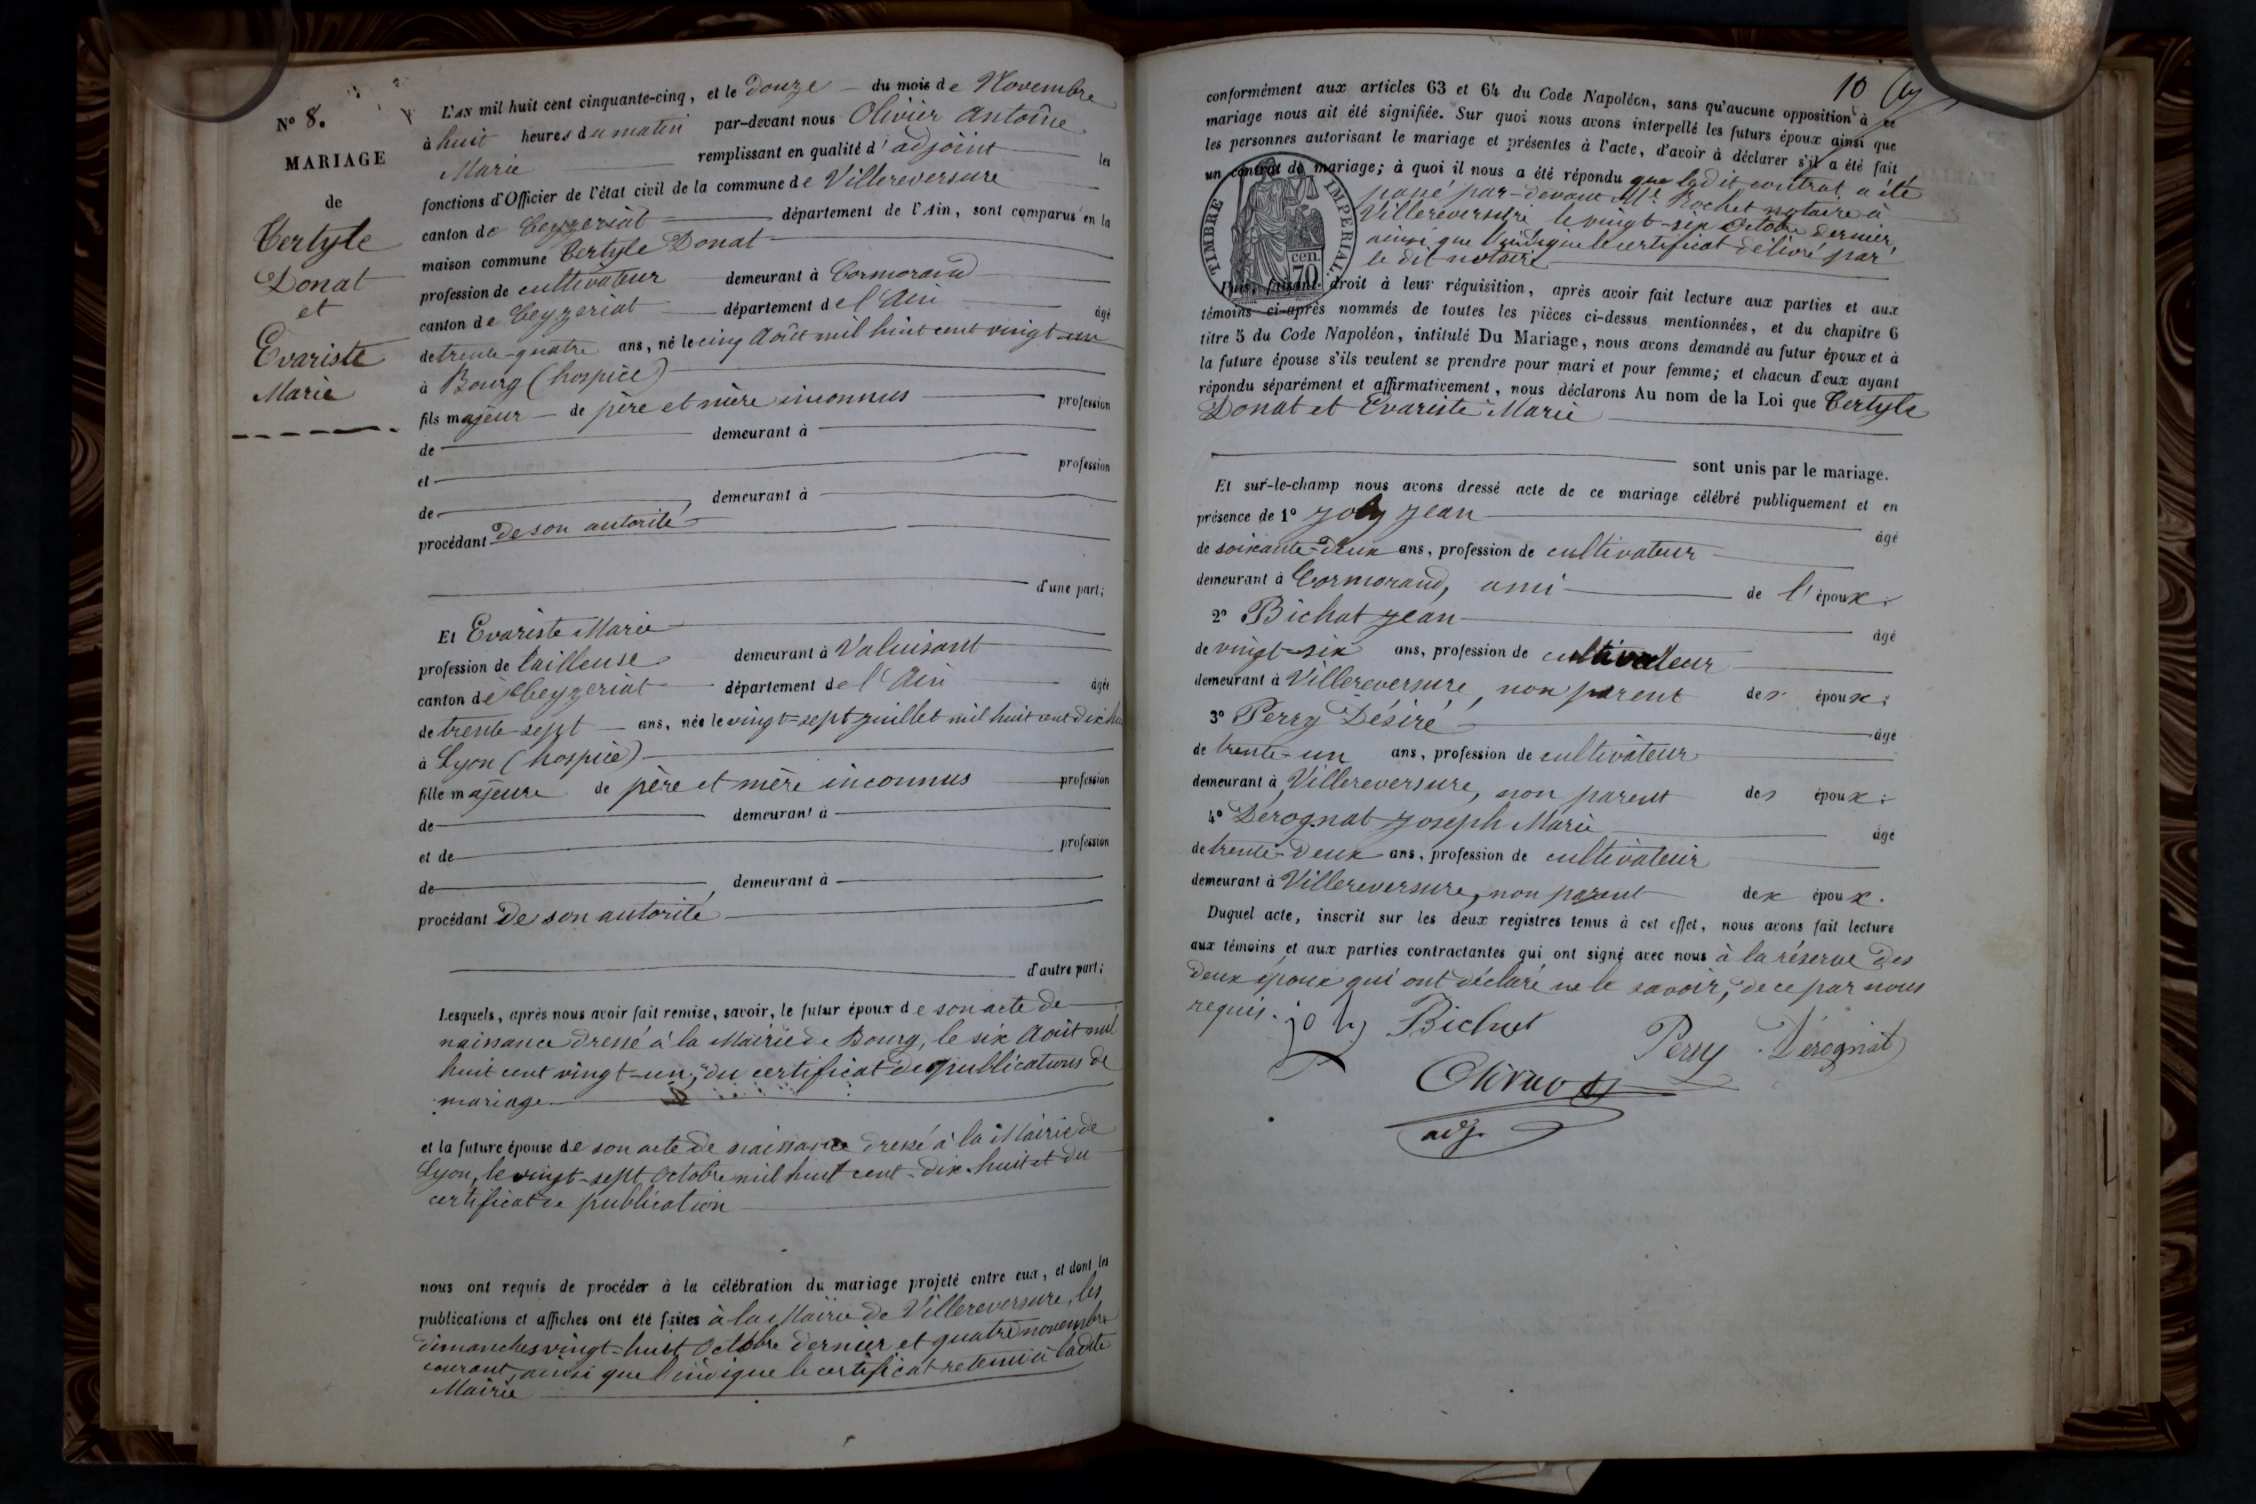 N° 8.
MARIAGE
de
Tertyle
Donat
et
Evariste
Marie
L'AN mil huit cent cinquante-cinq, et le douze du mois de Novembre
à huit heures du matin par-devant nous Olivier Antoine
Marie remplissant en qualité d'adjoint les
fonctions d'Officier de l'état civil de la commune de Villereversure
canton de Ceyzeriat département de l'Ain, sont comparus en la
maison commune Tertyle Donat
profession de cultivateur demeurant à Cormorand
canton de Ceyzeriat département de l'Ain âgé
de trente-quatre ans, né le cinq Août mil huit cent vingt-un
à Bourg (hospice)
fils majeur de père et mère inconnus profession
de demeurant à
et profession
de demeurant à
procédant de son autorité
d'une part;
Et Evariste Marie
profession de tailleuse demeurant à Valuisant
canton de Ceyzeriat département de l'Ain âgée
de trente-sept ans, née le vingt-sept juillet mil huit cent dix huit
à Lyon (hospice)
fille majeure de père et mère inconnus profession
de demeurant à
et de profession
de demeurant à
procédant de son autorité
d'autre part;
Lesquels, après nous avoir fait remise, savoir, le futur époux de son acte de
naissance dressé à la Mairie de Bourg, le six Août mil
huit cent vingt-un, du certificat de publications de
mariage
et la future épouse de son acte de naissance dressé à la Mairie de
Lyon, le vingt-sept Octobre mil huit cent-dix-huit et du
certificat de publication
nous ont requis de procéder à la célébration du mariage projeté entre eux, et dont les
publications et affiches ont été faites à la Mairie de Villereversure, les
dimanches vingt-huit Octobre dernier et quatre novembre
courant, ainsi que l'indique le certificat retenu à ladite
Mairie
10
conformément aux articles 63 et 64 du Code Napoléon, sans qu'aucune opposition à ce
mariage nous ait été signifiée. Sur quoi nous avons interpellé les futurs époux ainsi que
les personnes autorisant le mariage et présentes à l'acte, d'avoir à déclarer s'il a été fait
un contrat de mariage; à quoi il nous a été répondu que ledit contrat a été
passé par-devant Me Rochet notaire à
Villereversure le vingt-six Octobre dernier,
ainsi que l'indique le certificat délivré par
le dit notaire
TIMBRE IMPERIAL.
cen.
70
Puis, faisant droit à leur réquisition, après avoir fait lecture aux parties et aux
témoins ci-après nommés de toutes les pièces ci-dessus mentionnées, et du chapitre 6
titre 5 du Code Napoléon, intitulé Du Mariage, nous avons demandé au futur époux et à
la future épouse s'ils veulent se prendre pour mari et pour femme; et chacun d'eux ayant
répondu séparément et affirmativement, nous déclarons Au nom de la Loi que Tertyle
Donat et Evariste Marie
sont unis par le mariage.
Et sur-le-champ nous avons dressé acte de ce mariage célébré publiquement et en
présence de 1° Joly Jean
âgé
de soixante-deux ans, profession de cultivateur
demeurant à Cormorand, ami de l'époux.
2° Bichat Jean
âgé
de vingt-six ans, profession de cultivateur
demeurant à Villereversure, non parent des époux;
3° Perry Désiré
âgé
de trente-un ans, profession de cultivateur
demeurant à Villereversure, non parent des époux;
4° Derognat Joseph Marie
âgé
de trente-deux ans, profession de cultivateur
demeurant à Villereversure, non parent des époux.
Duquel acte, inscrit sur les deux registres tenus à cet effet, nous avons fait lecture
aux témoins et aux parties contractantes qui ont signé avec nous à la réserve des
deux époux qui ont déclaré ne le savoir, de ce par nous
requis. joly Bichat Perry Dérognat
Olivier
adj.